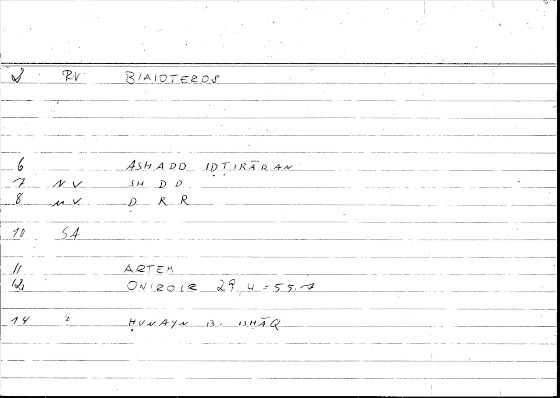 3 RV BIAIOTEROS
6 ASHADD IḌṬIRĀRAN
7 NV SH D D
8 NV Ḍ R R
10 SA
11 ARTEM
12 ONIROCR 29,4 = 55.7
14 2 ḤUNAYN B. ISḤĀQ